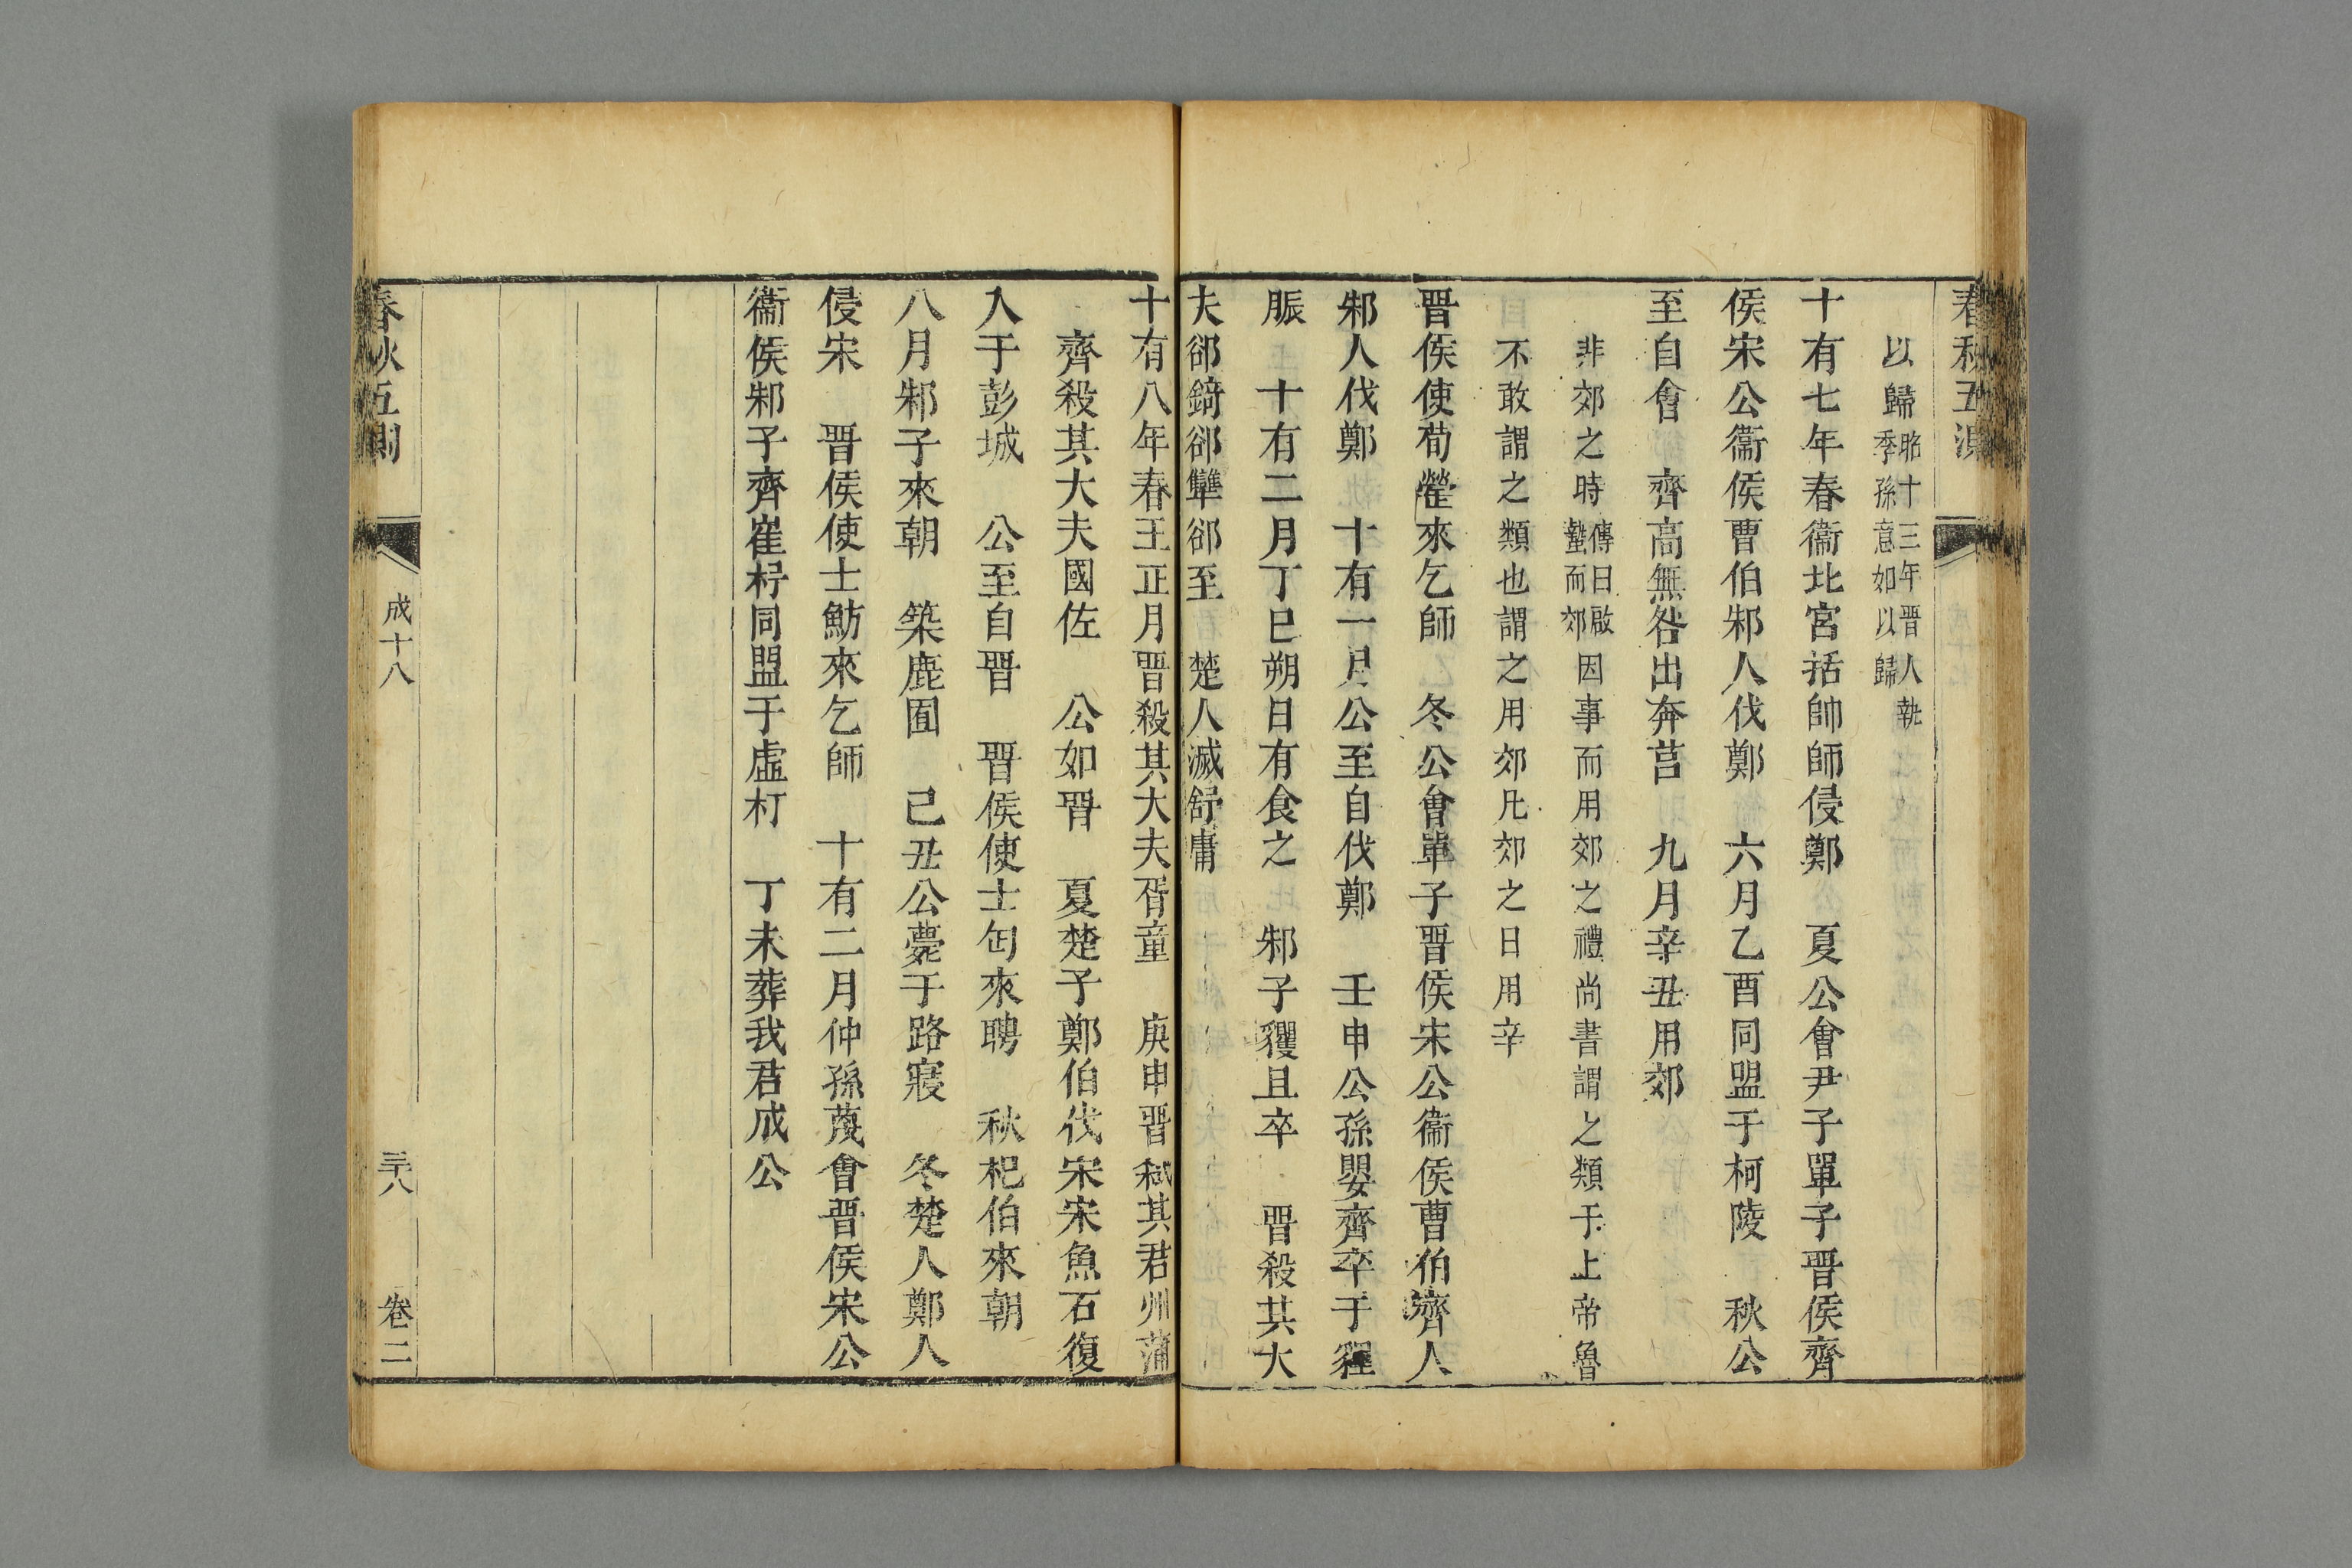 春秋五測
以歸昭十三年晉人執季孫意如以歸
十有七年春衞北宮括帥師侵鄭　夏公會尹子單子晉侯齊
侯宋公衞侯曹伯邾人伐鄭　六月乙酉同盟于柯陵　秋公
至自會　齊高無咎出奔莒　九月辛丑用郊
非郊之時傳曰啟蟄而郊因事而用郊之禮尚書謂之類于上帝魯
不敢謂之類也謂之用郊凡郊之日用辛
晉侯使荀罃來乞師　冬公會單子晉侯宋公衞侯曹伯齊人
邾人伐鄭　十有一月公至自伐鄭　壬申公孫嬰齊卒于貍
脤　十有二月丁巳朔日有食之　邾子貜且卒　晉殺其大
夫郤錡郤犫郤至　楚人滅舒庸
十有八年春王正月晉殺其大夫胥童　庚申晉弒其君州蒲
齊殺其大夫國佐　公如晉　夏楚子鄭伯伐宋宋魚石復
入于彭城　公至自晉　晉侯使士匄來聘　秋杞伯來朝
八月邾子來朝　築鹿囿　己丑公薨于路寢　冬楚人鄭人
侵宋　晉侯使士魴來乞師　十有二月仲孫蔑會晉侯宋公
衞侯邾子齊崔杼同盟于虛朾　丁未葬我君成公
春秋五測
成十八
三十八
卷二